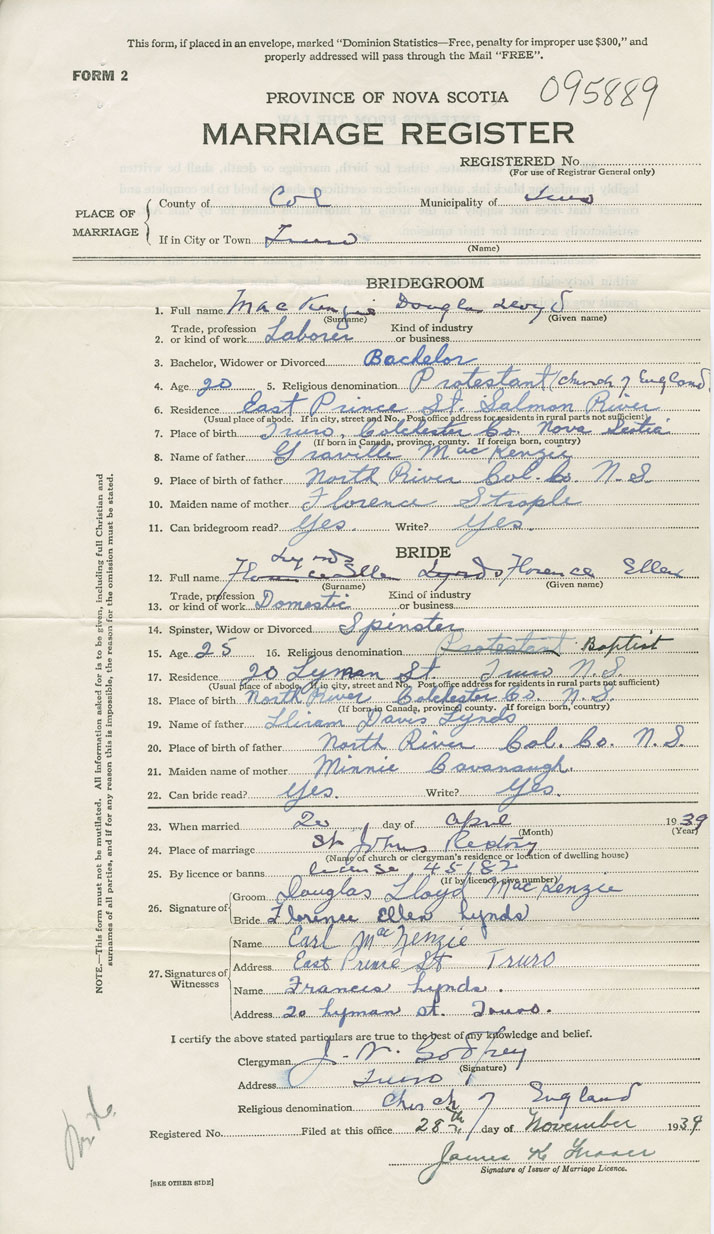 This form, if placed in an envelope, marked "Dominion Statistics—Free, penalty for improper use $300," and
properly addressed will pass through the Mail "FREE".
FORM 2
PROVINCE OF NOVA SCOTIA 095889
MARRIAGE REGISTER
REGISTERED No.
(For use of Registrar General only)
PLACE OF MARRIAGE
County of Col Municipality of Truro
If in City or Town Truro
(Name)
BRIDEGROOM
1. Full name MacKenzie Douglas Lloyd
(Surname) (Given name)
2. Trade, profession or kind of work Laborer Kind of industry or business
3. Bachelor, Widower or Divorced Bachelor
4. Age 20 5. Religious denomination Protestant (Church of England)
6. Residence East Prince St. Salmon River
(Usual place of abode. If in city, street and No. Post office address for residents in rural parts not sufficient)
7. Place of birth Truro, Colchester Co. Nova Scotia
(If born in Canada, province, county. If foreign born, country)
8. Name of father Granville MacKenzie
9. Place of birth of father North River Col. Co. N. S.
10. Maiden name of mother Florence Strople
11. Can bridegroom read? Yes. Write? Yes.
BRIDE
Lynds
12. Full name Florence Ellen Lynds Florence Ellen
(Surname) (Given name)
13. Trade, profession or kind of work Domestic Kind of industry or business
14. Spinster, Widow or Divorced Spinster
15. Age 25 16. Religious denomination Protestant Baptist
17. Residence 20 Lyman St. Truro N.S.
(Usual place of abode. If in city, street and No. Post office address for residents in rural parts not sufficient)
18. Place of birth North River Colchester Co. N. S.
(If born in Canada, province, county. If foreign born, country)
19. Name of father Hiram Davis Lynds
20. Place of birth of father North River Col. Co. N. S.
21. Maiden name of mother Minnie Cavanaugh.
22. Can bride read? Yes. Write? Yes.
23. When married 20 day of April 1939
(Month) (Year)
24. Place of marriage St Johns Rectory
(Name of church or clergyman's residence or location of dwelling house)
25. By licence or banns license 45182
(If by licence, give number)
26. Signature of
Groom Douglas Lloyd MacKenzie
Bride Florence Ellen Lynds
27. Signatures of Witnesses
Name Earl MacKenzie
Address East Prince St Truro
Name Frances Lynds.
Address 20 Lyman St. Truro.
I certify the above stated particulars are true to the best of my knowledge and belief.
Clergyman J. W. Godfrey
(Signature)
Address Truro
Religious denomination Church of England
Registered No. Filed at this office 28th day of November 1939
James K Fraser
Signature of Issuer of Marriage Licence.
[SEE OTHER SIDE]
NOTE.—This form must not be mutilated. All information asked for is to be given, including full Christian and
surnames of all parties, and if for any reason this is impossible, the reason for the omission must be stated.